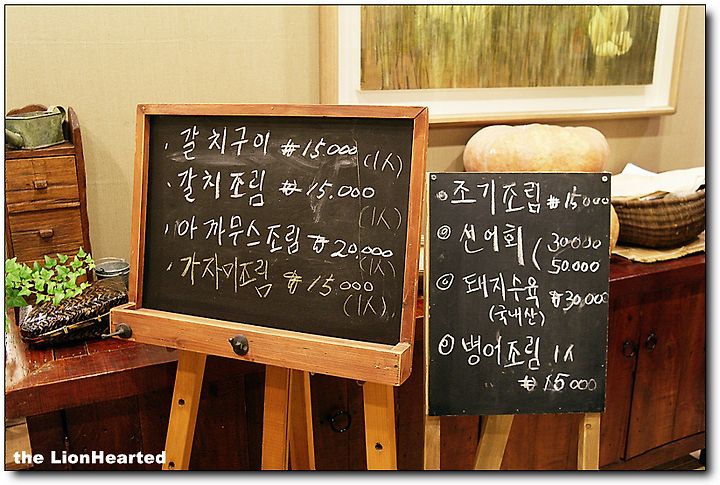 · 갈치구이 ₩15.000 (1人)
· 갈치조림 ₩15.000 (1人)
· 아까무스조림 ₩20.000 (1人)
· 가자미조림 ₩15000 (1人)
조기조림 ₩15000
선어회 ( 30.000
50.000
돼지수육 ₩30,000
(국내산)
병어조림 1人
₩15000
the LionHearted